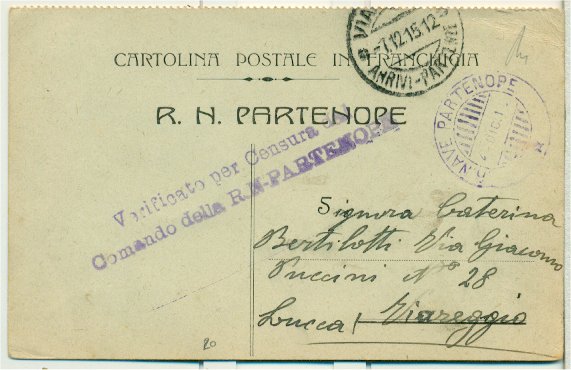 CARTOLINA POSTALE IN FRANCHIGIA
R. N. PARTENOPE
7.12.15 12
ARRIVI-PARTENZE
R. NAVE PARTENOPE
Verificato per Censura dal
Comando della R.N-PARTENOPE
Signora Caterina
Bertilotti Via Giacomo
Puccini No 28
Lucca Viareggio
20